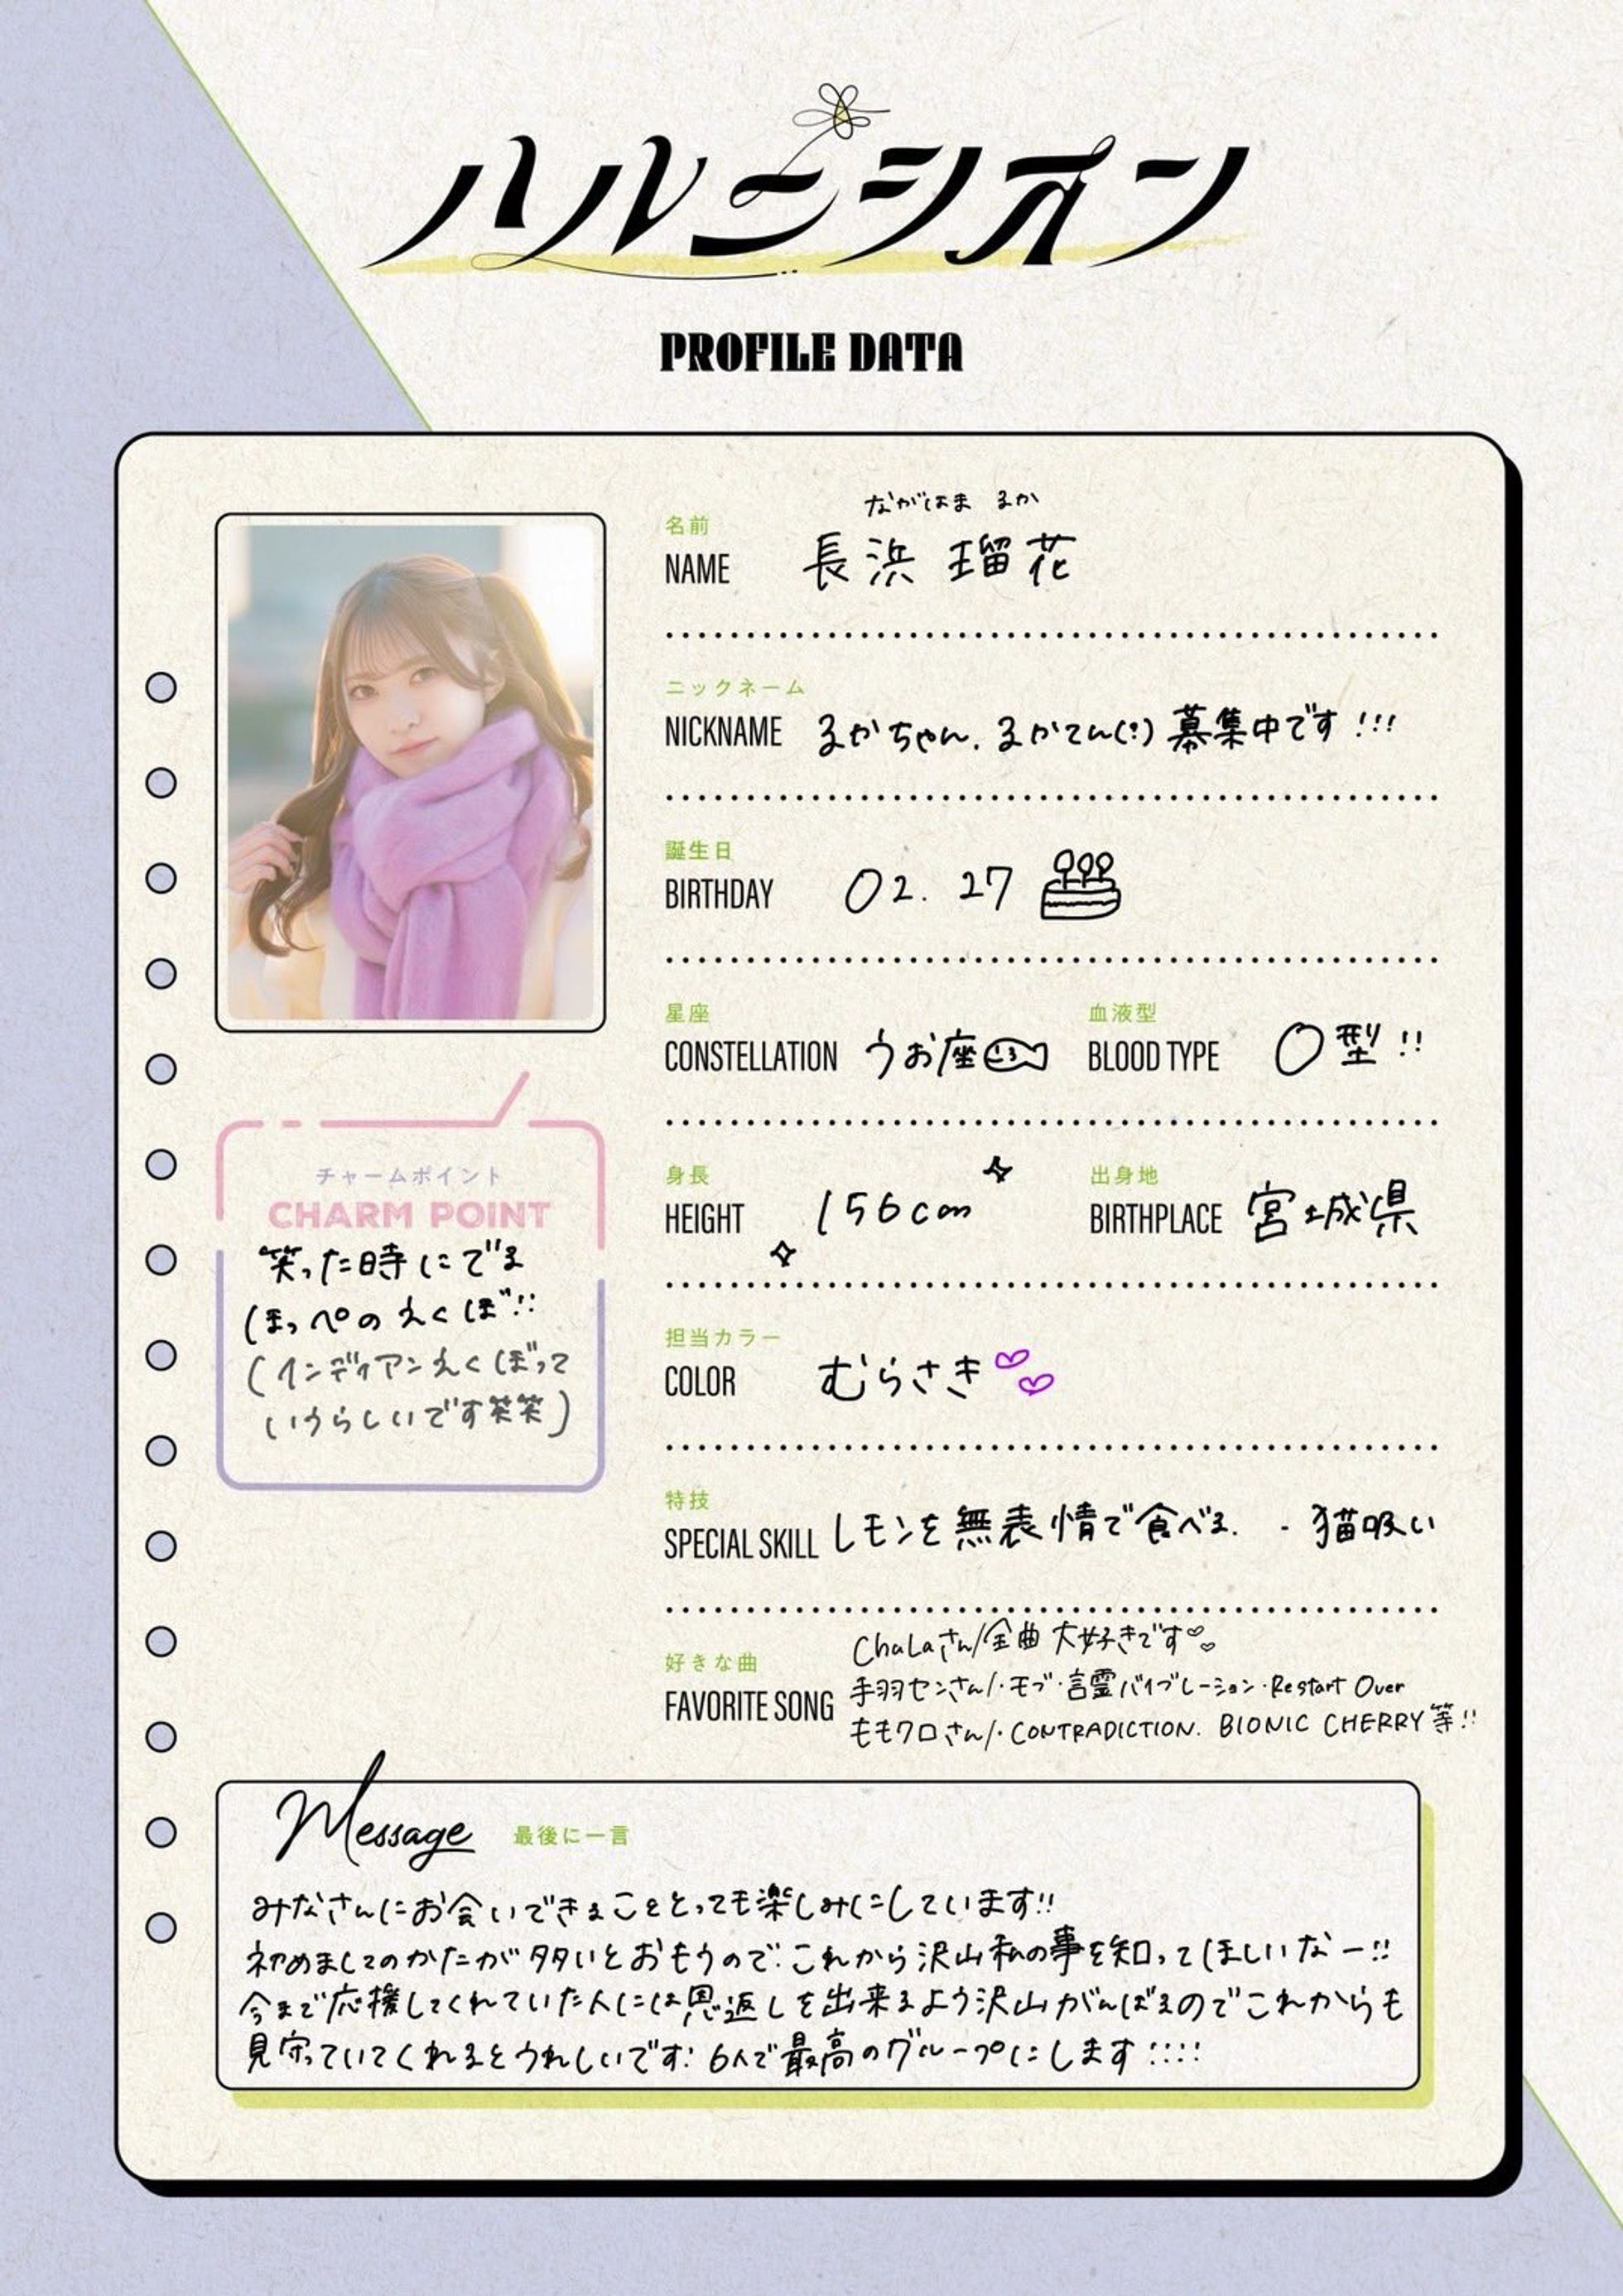 ハルニシオン
PROFILE DATA
ながはま るか
名前
NAME 長浜 瑠花
ニックネーム
NICKNAME るかちゃん、るかてん(?) 募集中です!!!
誕生日
BIRTHDAY 02. 27
星座
CONSTELLATION うお座
血液型
BLOOD TYPE O型!!
身長
HEIGHT 156cm
出身地
BIRTHPLACE 宮城県
担当カラー
COLOR むらさき
特技
SPECIAL SKILL レモンを無表情で食べる. ・猫吸い
好きな曲
FAVORITE SONG
ChuLaさん/全曲 大好きです
手羽センさん/・モブ・言霊バイブレーション・Restart Over
ももクロさん/・CONTRADICTION. BIONIC CHERRY等!!
チャームポイント
CHARM POINT
笑った時にでる
ほっぺのえくぼ!!
(インディアンえくぼって
いうらしいです笑笑)
Message 最後に一言
みなさんにお会いできることとっても楽しみにしています!!
初めましてのかたが多いとおもうので、これから沢山私の事を知ってほしいなー!!
今まで応援してくれていた人には恩返しを出来るよう沢山がんばるのでこれからも
見守っていてくれるとうれしいです! 6人で最高のグループにします!!!!